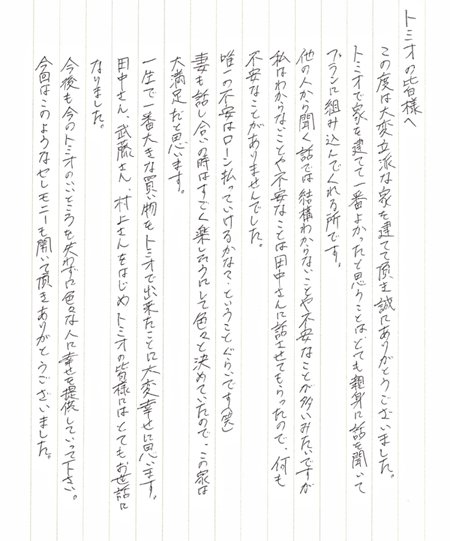 トミオの皆様へ
この度は大変立派な家を建てて頂き誠にありがとうございました。
トミオで家を建てて一番よかったと思うことはとても親身に話を聞いて
プランに組み込んでくれる所です。
他の人から聞く話では結構わからないことや不安なことが多いみたいですが
私はわからないことや不安なことは田中さんに話させてもらったので、何も
不安なことがありませんでした。
唯一の不安はローン払っていけるかな々ということぐらいです(笑)
妻も話し合いの時はすごく楽しそうにして色々と決めていたので、この家は
大満足だと思います。
一生で一番大きな買い物をトミオで出来たことに大変幸せに思います。
田中さん、武藤さん、村上さんをはじめトミオの皆様にはとてもお世話に
なりました。
今後も今のトミオのいいところを失わずに色々な人に幸せを提供していって下さい。
今回はこのようなセレモニーも開いて頂きありがとうございました。